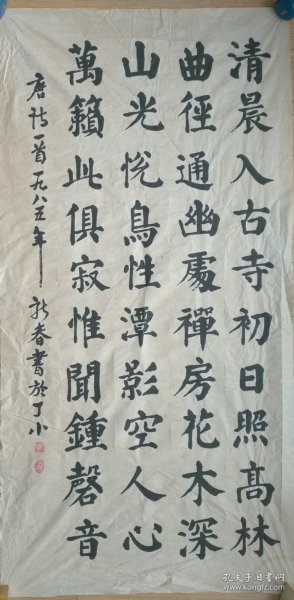 清晨入古寺初日照高林
曲徑通幽處禪房花木深
山光悅鳥性潭影空人心
萬籟此俱寂惟聞鍾磬音
唐詩一首一九八五年新春書於丁小
孔夫子旧书网
www.kongfz.com